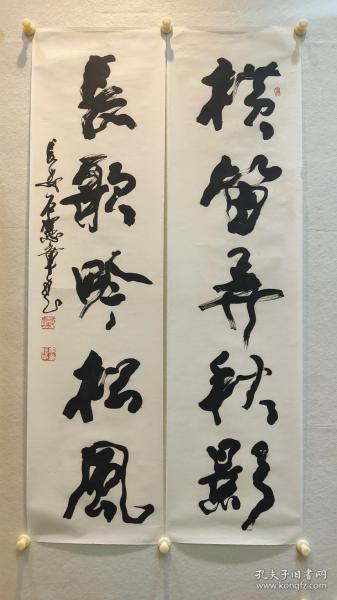 横笛弄秋影
長歌吟松風
長安石憲章書
孔夫子旧书网
www.kongfz.com